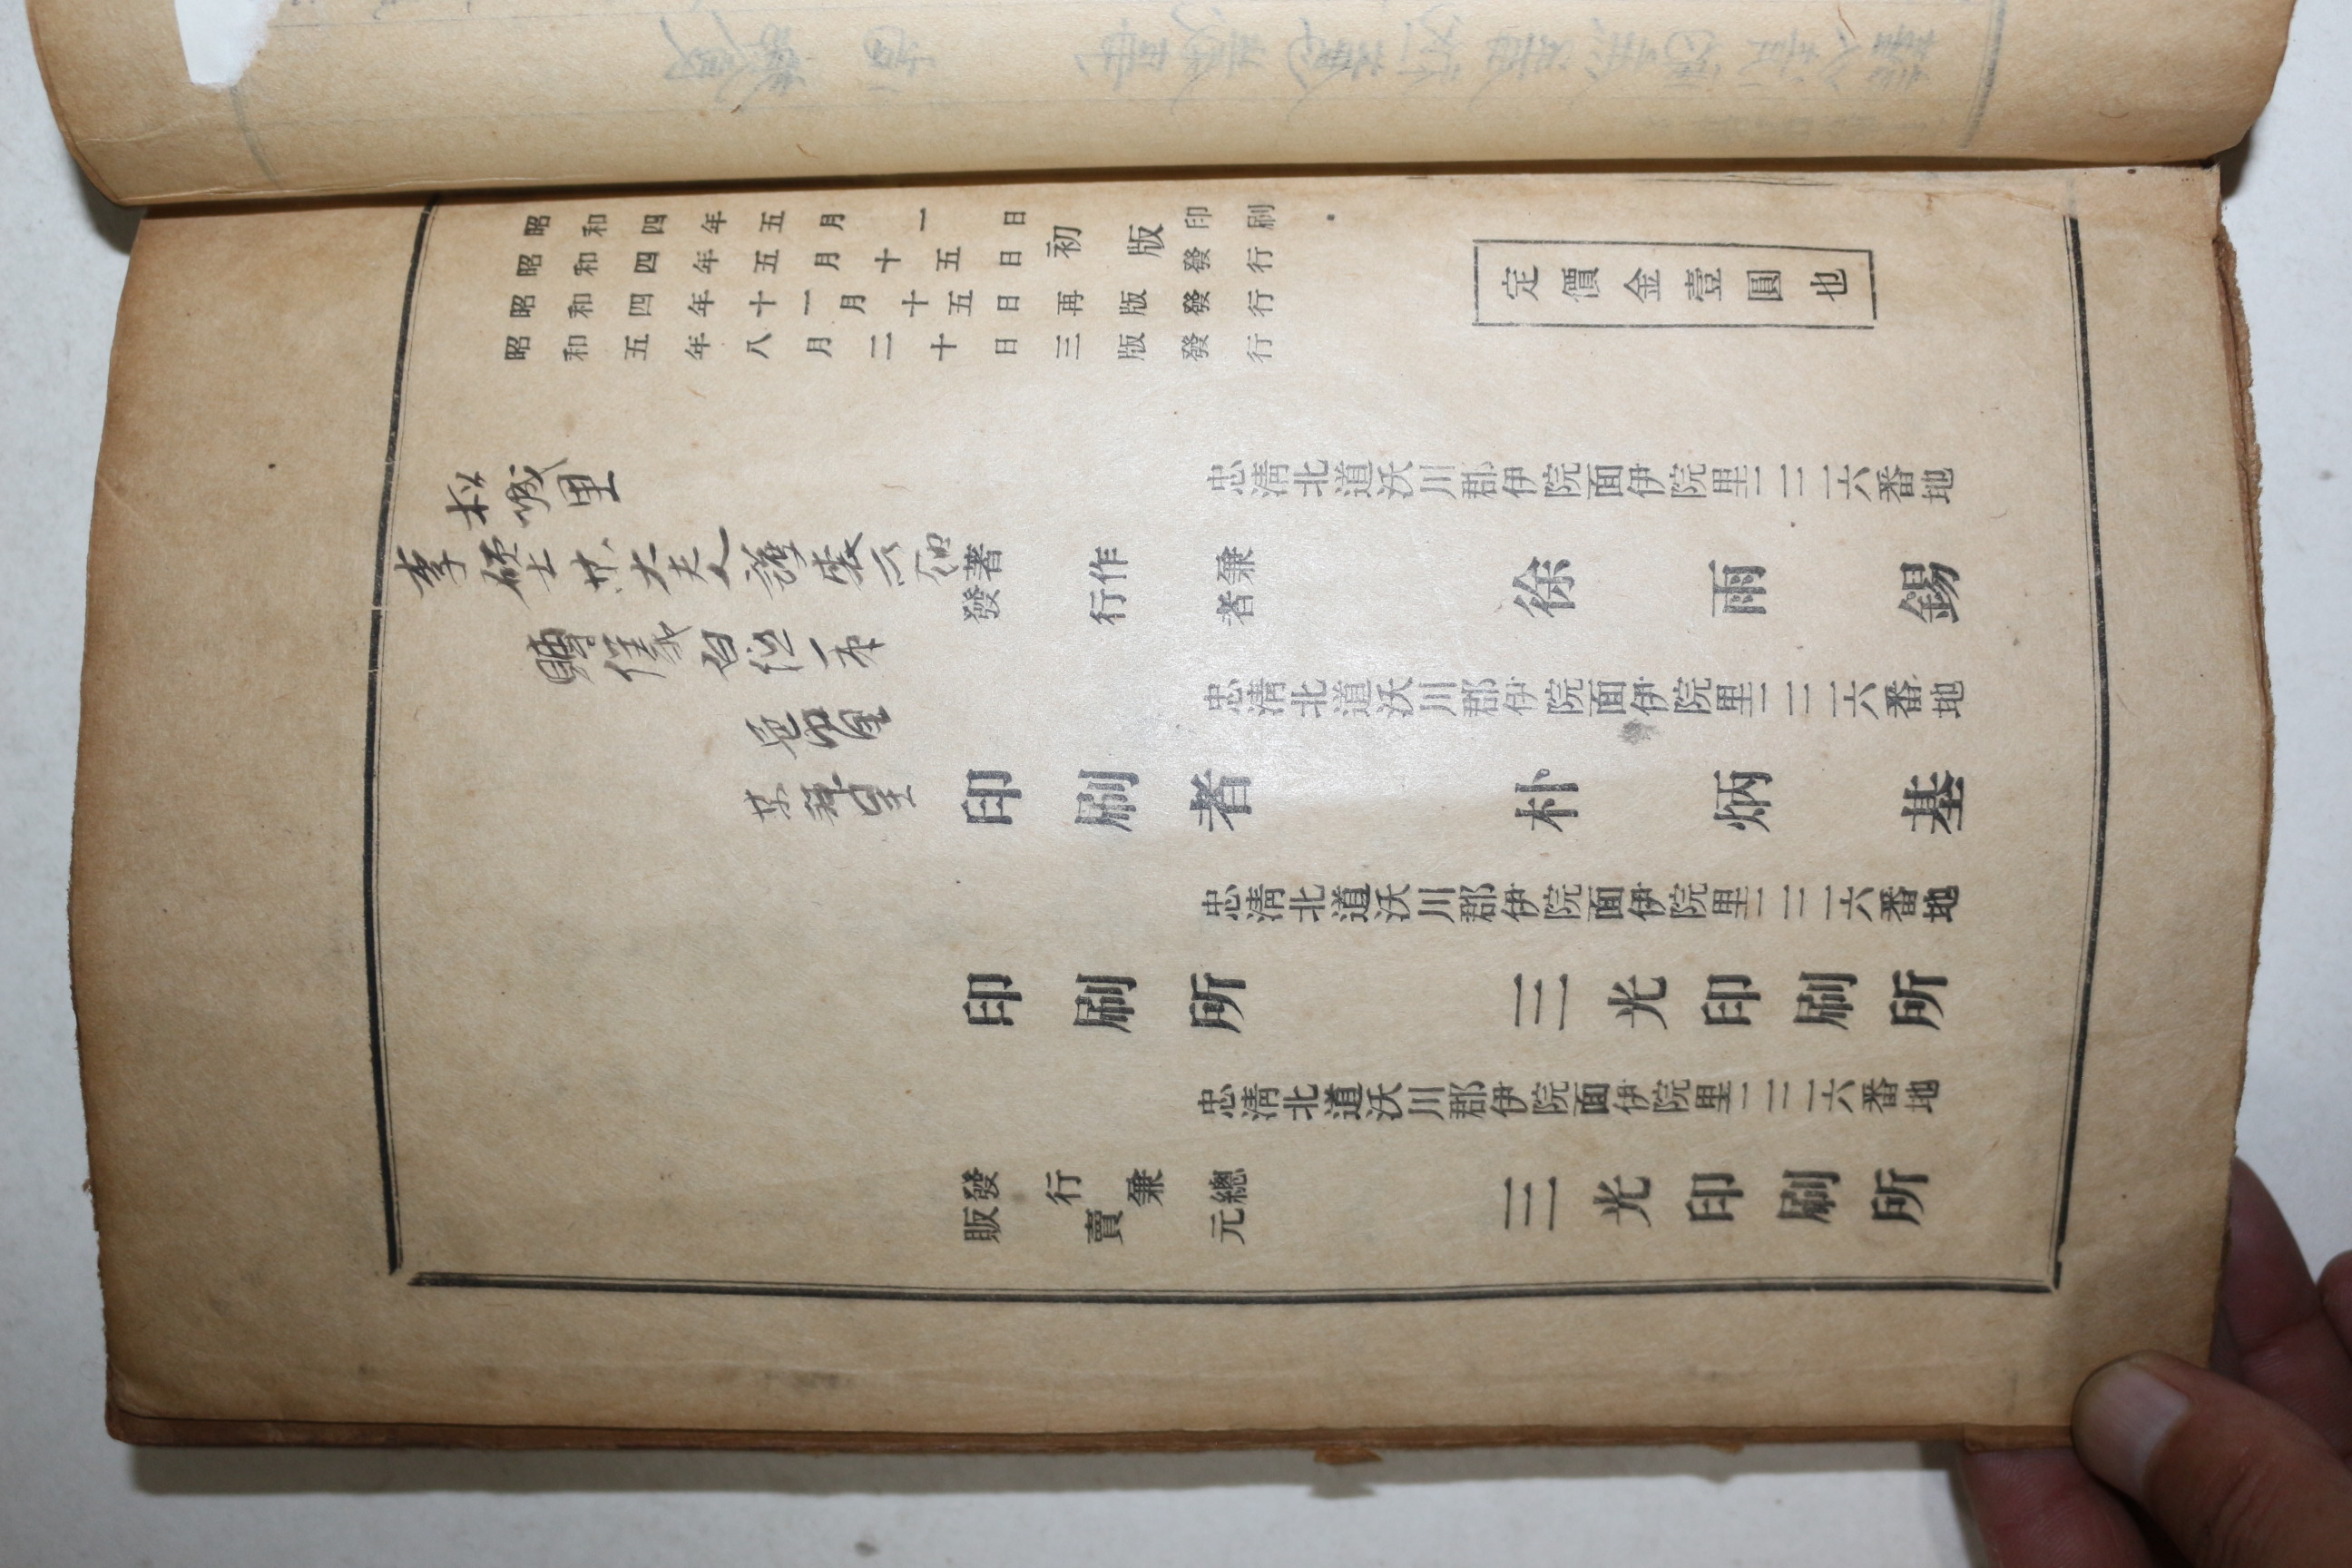 昭和四年五月一日初版印刷
昭和四年五月十五日初版發行
昭和四年十一月十五日再版發行
昭和五年八月二十日三版發行
定價金壹圓也
忠淸北道沃川郡伊院面伊院里二二六番地
著作兼
發行者 徐雨錫
忠淸北道沃川郡伊院面伊院里二二六番地
印刷者 朴炳基
忠淸北道沃川郡伊院面伊院里二二六番地
印刷所 三光印刷所
忠淸北道沃川郡伊院面伊院里二二六番地
發行兼總
販賣元 三光印刷所
松城里
李碩士某大夫人護喪所
賻儀白紙一束
某拜呈